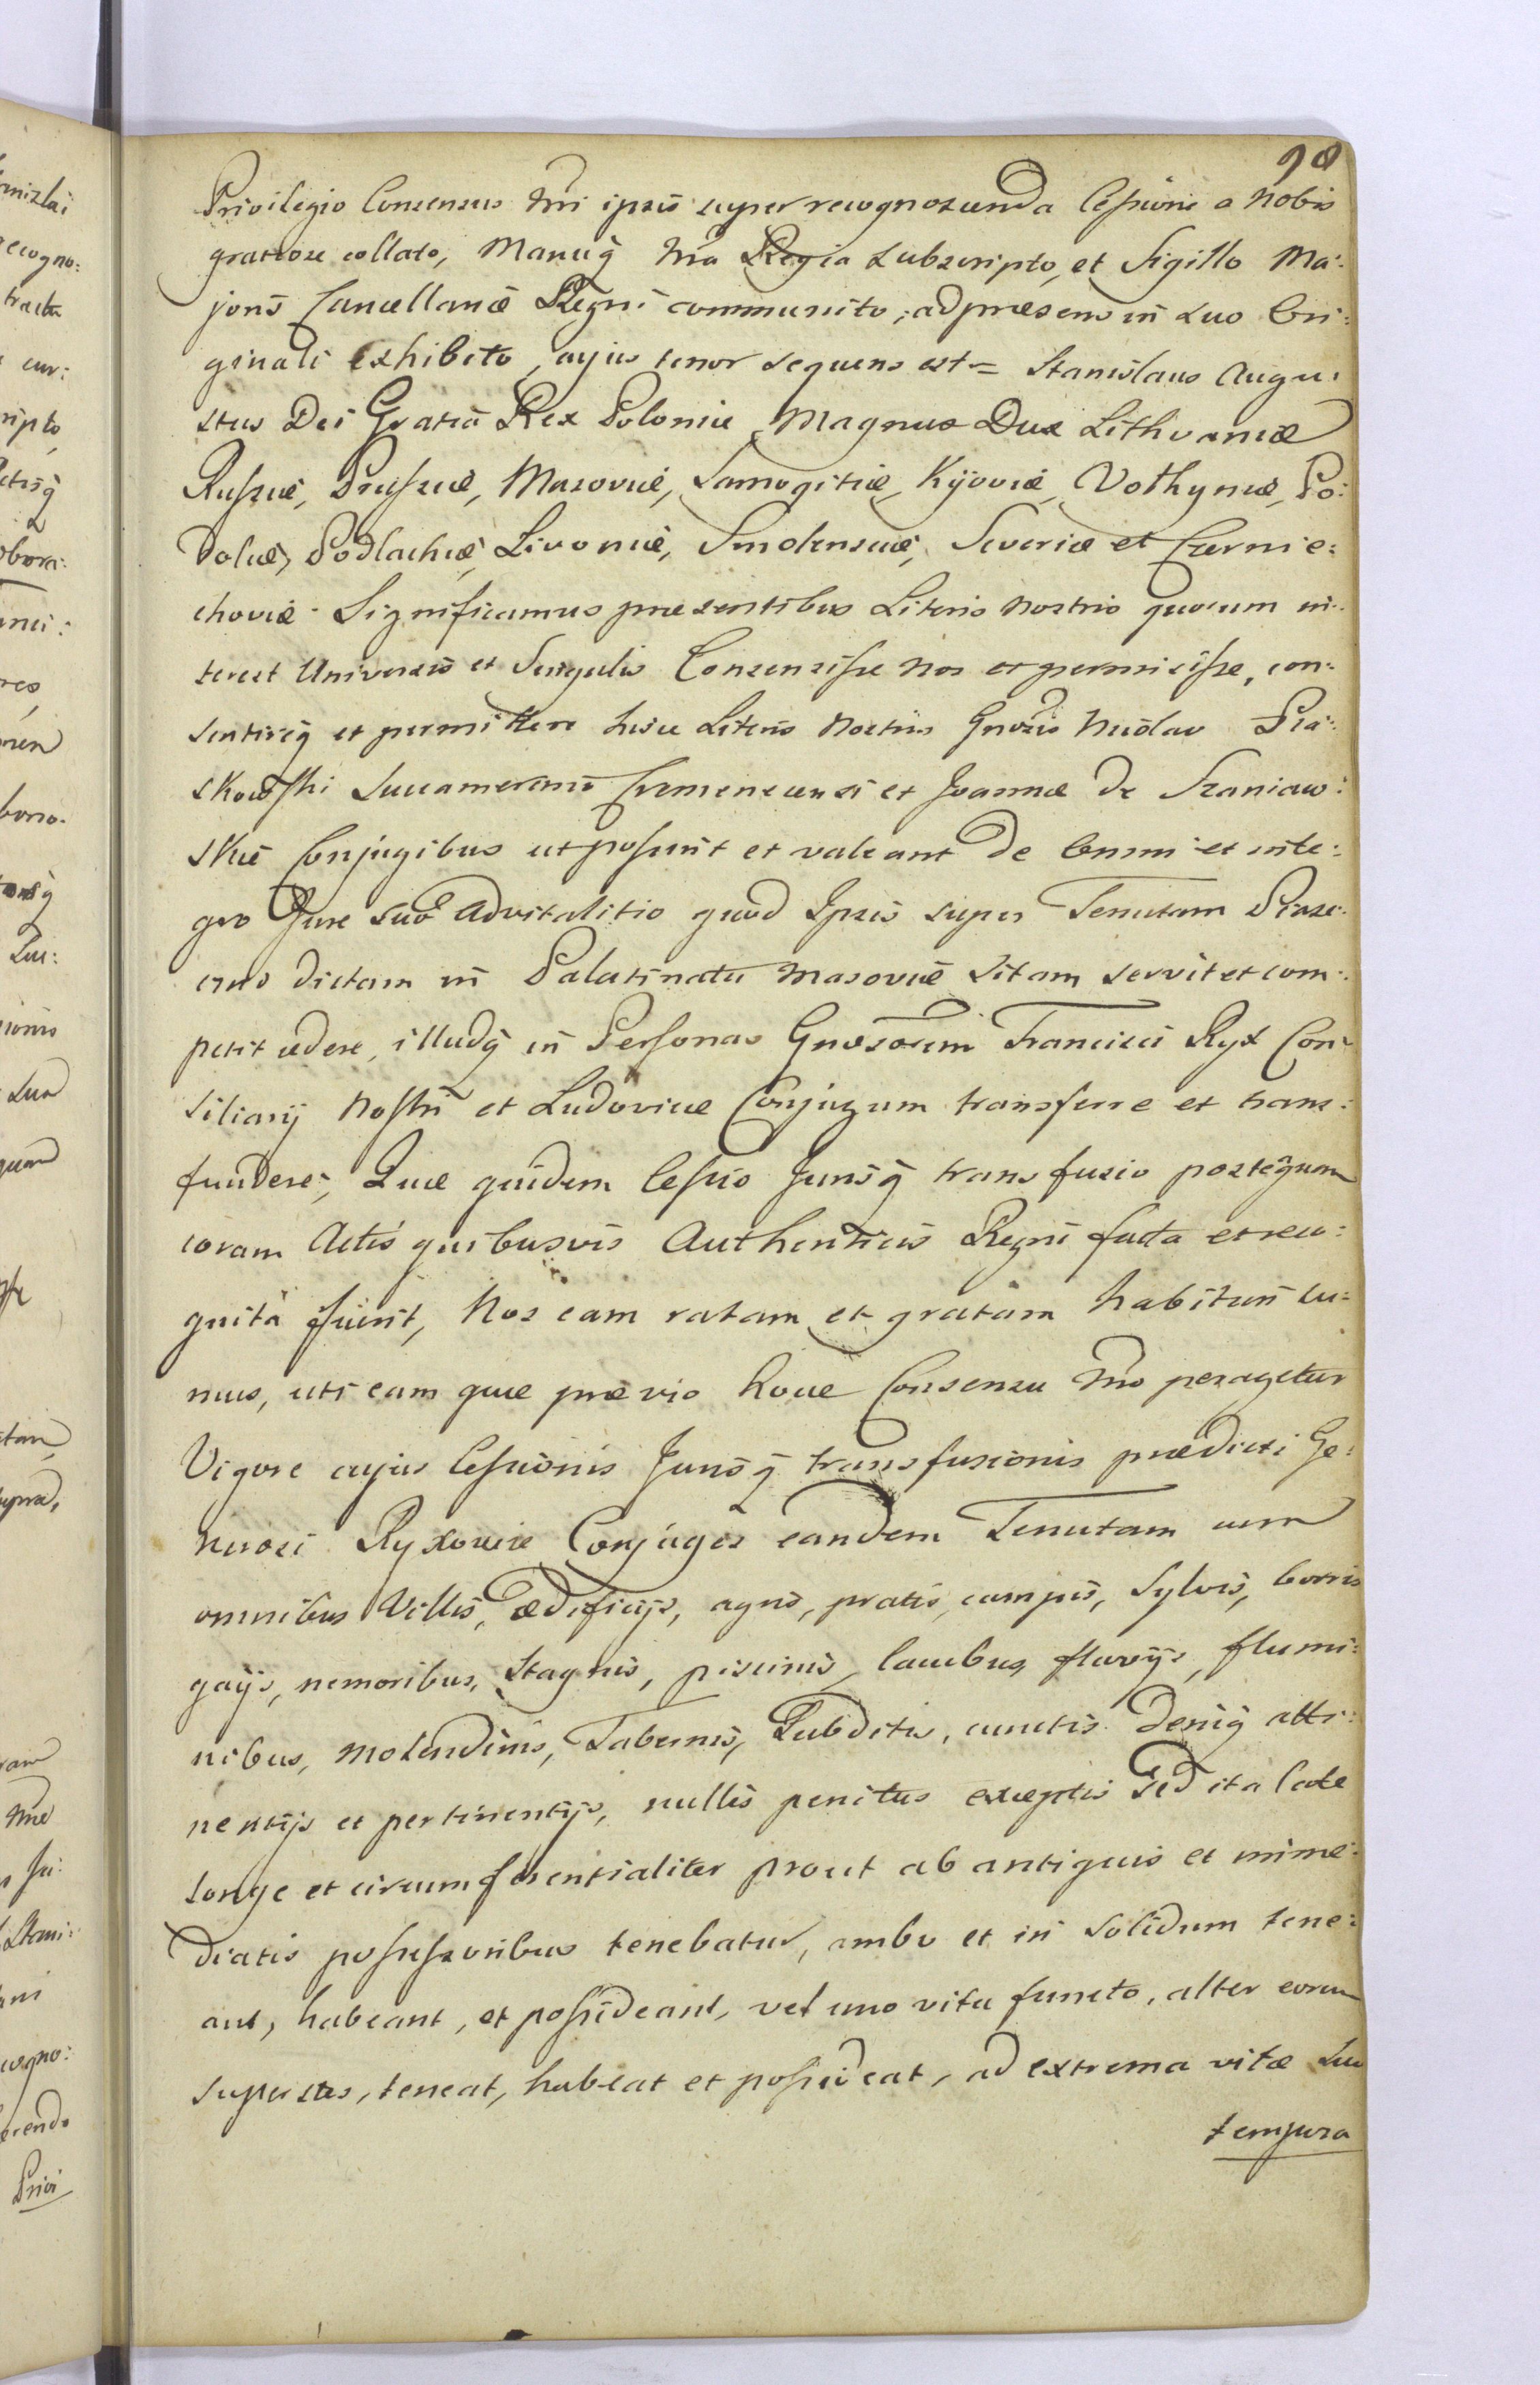 98
Privilegio Consensus Nri ipsis super recognoscenda Cessione a Nobis
gratiose collato, Manuq Nra Regia Subscripto, et Sigillo Ma:
joris Cancellariæ Regni communito, ad præsens in suo Ori:
ginali exhibito, cujus tenor sequens est = Stanislaus Augu:
stus Dei Gratia Rex Poloniæ Magnus Dux Lithvaniæ
Russiæ, Prussiæ, Masoviæ, Samogitiæ, Kijoviæ, Volhyniæ, Po:
doliæ, Podlachiæ, Livoniæ, Smolensciæ, Severiæ et Czernie:
choviæ. Significamus præsentibus Literis Nostris quorum in:
terest Universis et Singulis Consensisse Nos et permisisse, con:
sentireq et permittere hisce Literis Nostris Gnosis Nicolao Pia:
skowski Succamerario Cremenecensi et Joannæ de Szaniaw:
skie Conjugibus ut possint et valeant de Omni et inte:
gro Jure suo Advitalitio quod Ipsis super Tenutam Piase:
czno dictam in Palatinatu Masoviæ sitam servit et com:
petit cedere, illudq in Personas Gnosorum Francisci Ryx Con:
siliarij Nostri et Ludovicæ Conjugum transferre et trans:
fundere; Quæ quidem Cessio Jurisq transfusio posteaquam
coram Actis quibusvis Authenticis Regni facta et reco:
gnita fuerit, Nos eam ratam et gratam habituri su:
mus, uti eam quæ prævio hocce Consensu Nro peragetur
Vigore cujus Cessionis Jurisq transfusionis prædicti Ge:
nerosi Ryxowie Conjuges eandem Tenutam cum
omnibus Villis, ædificijs, agris, pratis, campis, Sylvis, borris
gajis, nemoribus, Stagnis, piscinis, lacubus, fluvijs, flumi:
nibus, molendinis, Tabernis, Subditis, cunctis deniq atti:
nentijs et pertinentijs, nullis penitus exceptis Sed ita late
longe et circumferentialiter prout ab antiquis et imme:
diatis possessoribus tenebatur, ambo et in solidum tene:
ant, habeant, et possideant, vel uno vita functo, alter eorum
superstes, teneat, habeat et possideat, ad extrema vitæ suæ
tempora